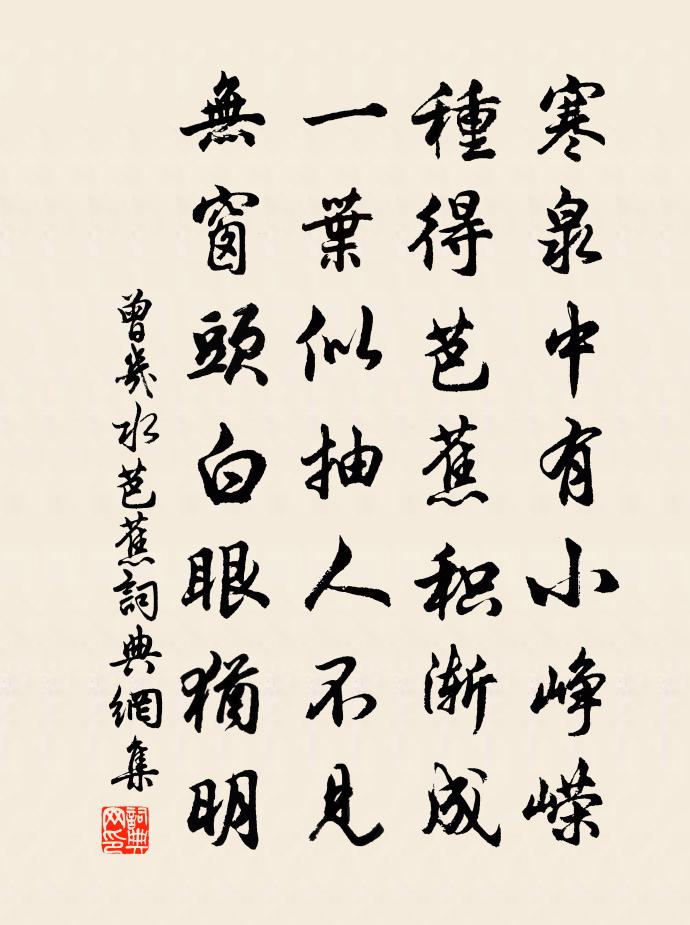 寒泉中有小峥嵘
種得芭蕉积渐成
一葉似抽人不見
無窗頭白眼猶明
曾幾水芭蕉詞典網集
詞典网印